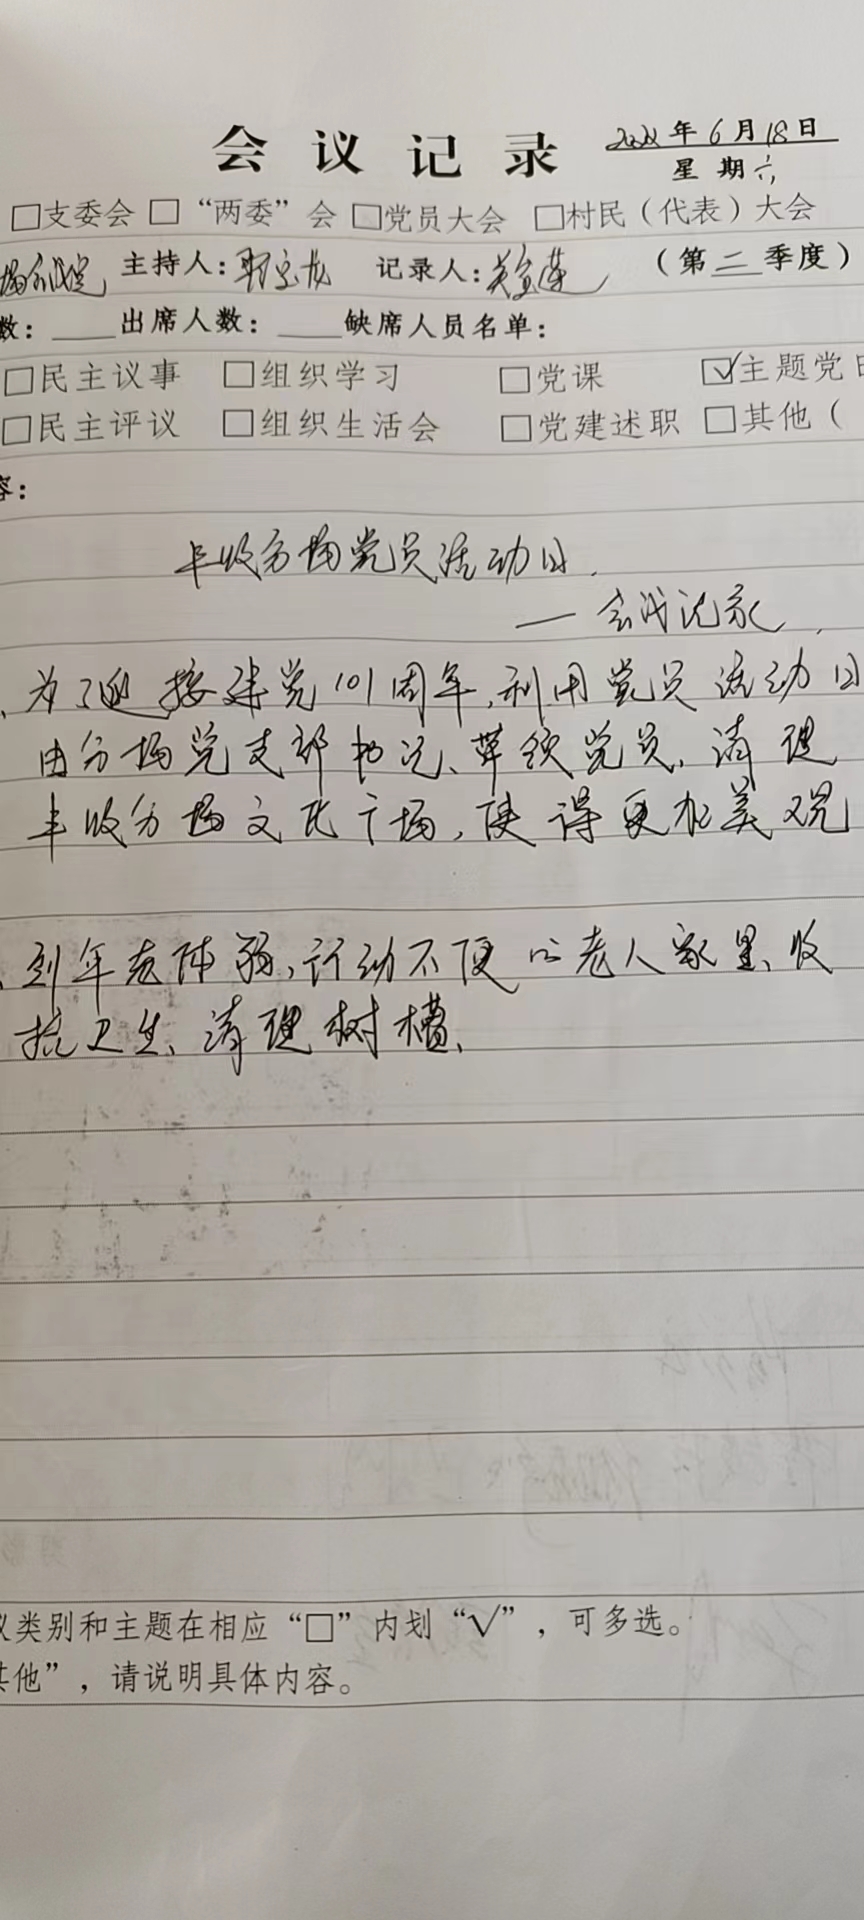 会议记录 2022年6月18日
星期六
□支委会 □“两委”会 □党员大会 □村民（代表）大会
主持人： 记录人： （第二季度）
数：____出席人数：____缺席人员名单：
□民主议事 □组织学习 □党课 ☑主题党日
□民主评议 □组织生活会 □党建述职 □其他（
容：
丰收分场党员活动日.
— 会议记录
、为了迎接建党101周年，利用党员活动日
由分场党支部书记、带领党员、清理
丰收分场文化广场，使得更加美观
、到年老体弱，行动不便的老人家里、收
拾卫生、清理树槽、
议类别和主题在相应“□”内划“√”，可多选。
其他”，请说明具体内容。